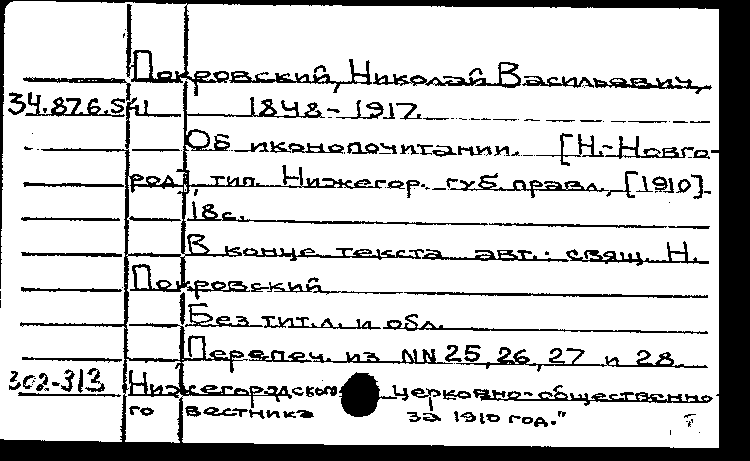 Покровский, Николай Васильевич,
34.87.6.541 1848-1917.
Об иконопочитании. [Н.-Новго-
род], тип. Нижегор. губ. правл., [1910].
18с.
В конце текста авт.: свящ. Н.
Покровский
Без тит.л. и обл.
Перепеч. из NN 25, 26, 27 и 28
302-313 Нижегородского церковно-общественно-
го вестника за 1910 год."